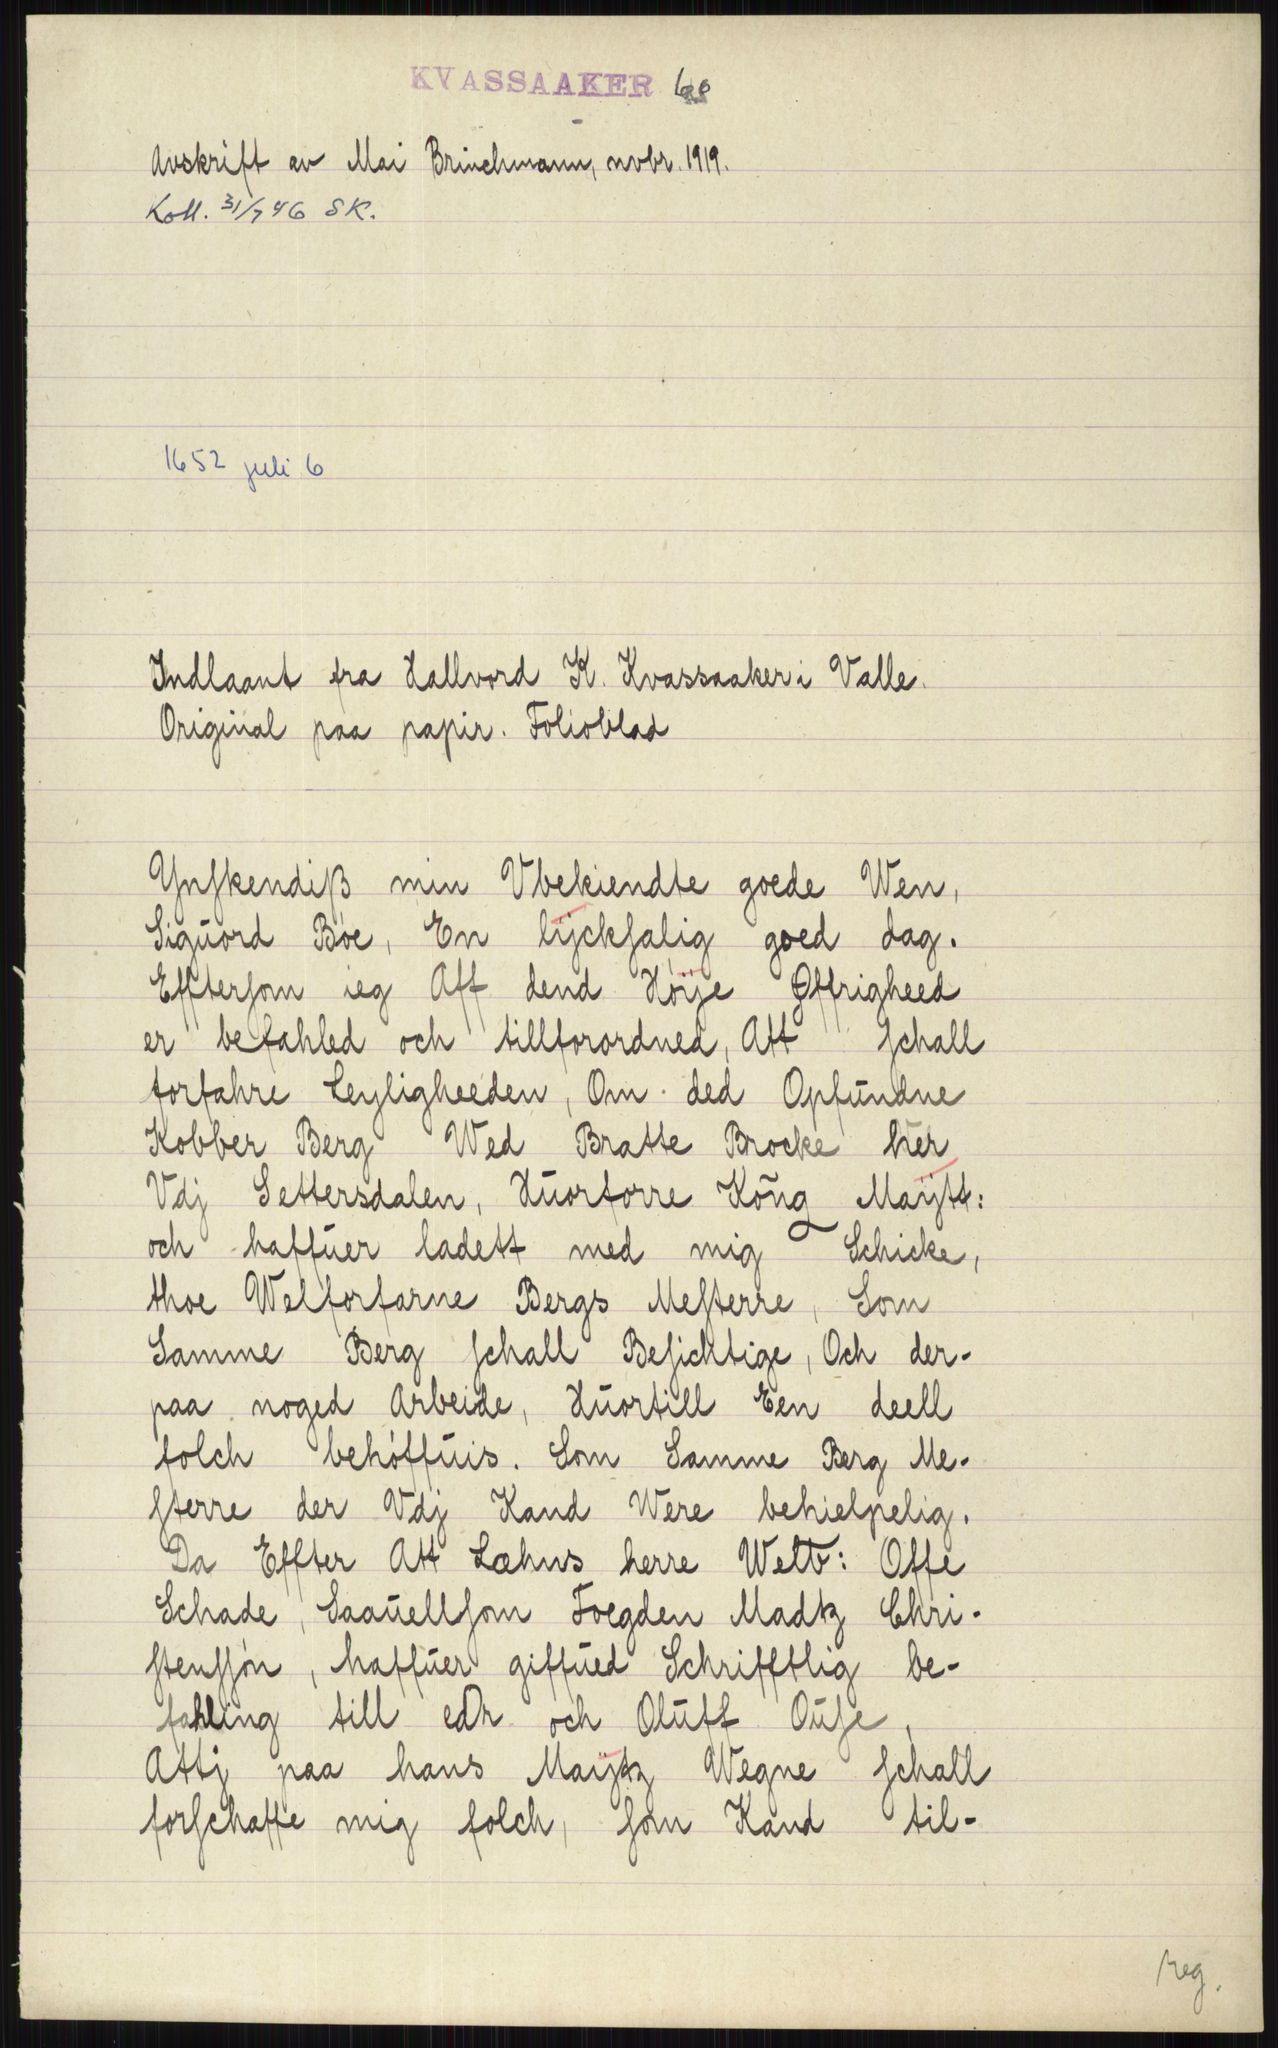 KVASSAAKER 60
Avskrift av Mai Brinchmann, novbr. 1919.
Koll. 31/7 46 SK.
1652 juli 6
Indlaant fra Hallvord K. Kvassaaker i Valle.
Original paa papir. Folioblad
Ynſkendiß min Vbekiendte goede Wen,
Siguord Bøe, En lÿckſalig goed dag.
Efftersom ieg Aff dend Høÿe Øffrigheed
er befahled och tillforordned, Att ſchall
forfahre Leyligheeden, Om ded Opfundne
Kobber Berg Wed Bratte Brocke her
Vdj Settersdalen, Huorforre Kong Maÿtt:
och haffuer ladett med mig Schicke,
thoe Welforfarne Bergs Meſterre, Som
Samme Berg ſchall Beſichtige, Och der-
paa noged Arbeide, Huortill Een deell
folch behøffuis. Som Samme Berg Me-
ſterre der Vdj Kand Were behielpelig.
Da Effter Att Læhns herre Welb: Offe
Schade, Saauellſom Foegden Madtz Chri-
ſtenſſøn, haffuer giffued Schrifftlig be-
fahling till edr och Oluff Ouſe,
Attj paa hans Maÿtz Wegne ſchall
forſchaffe mig folch, ſom Kand til-
reg.